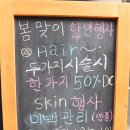 봄맞이 할인행사
Hair~
두가지 시술시
한가지 50% DC
skin 행사
미백관리